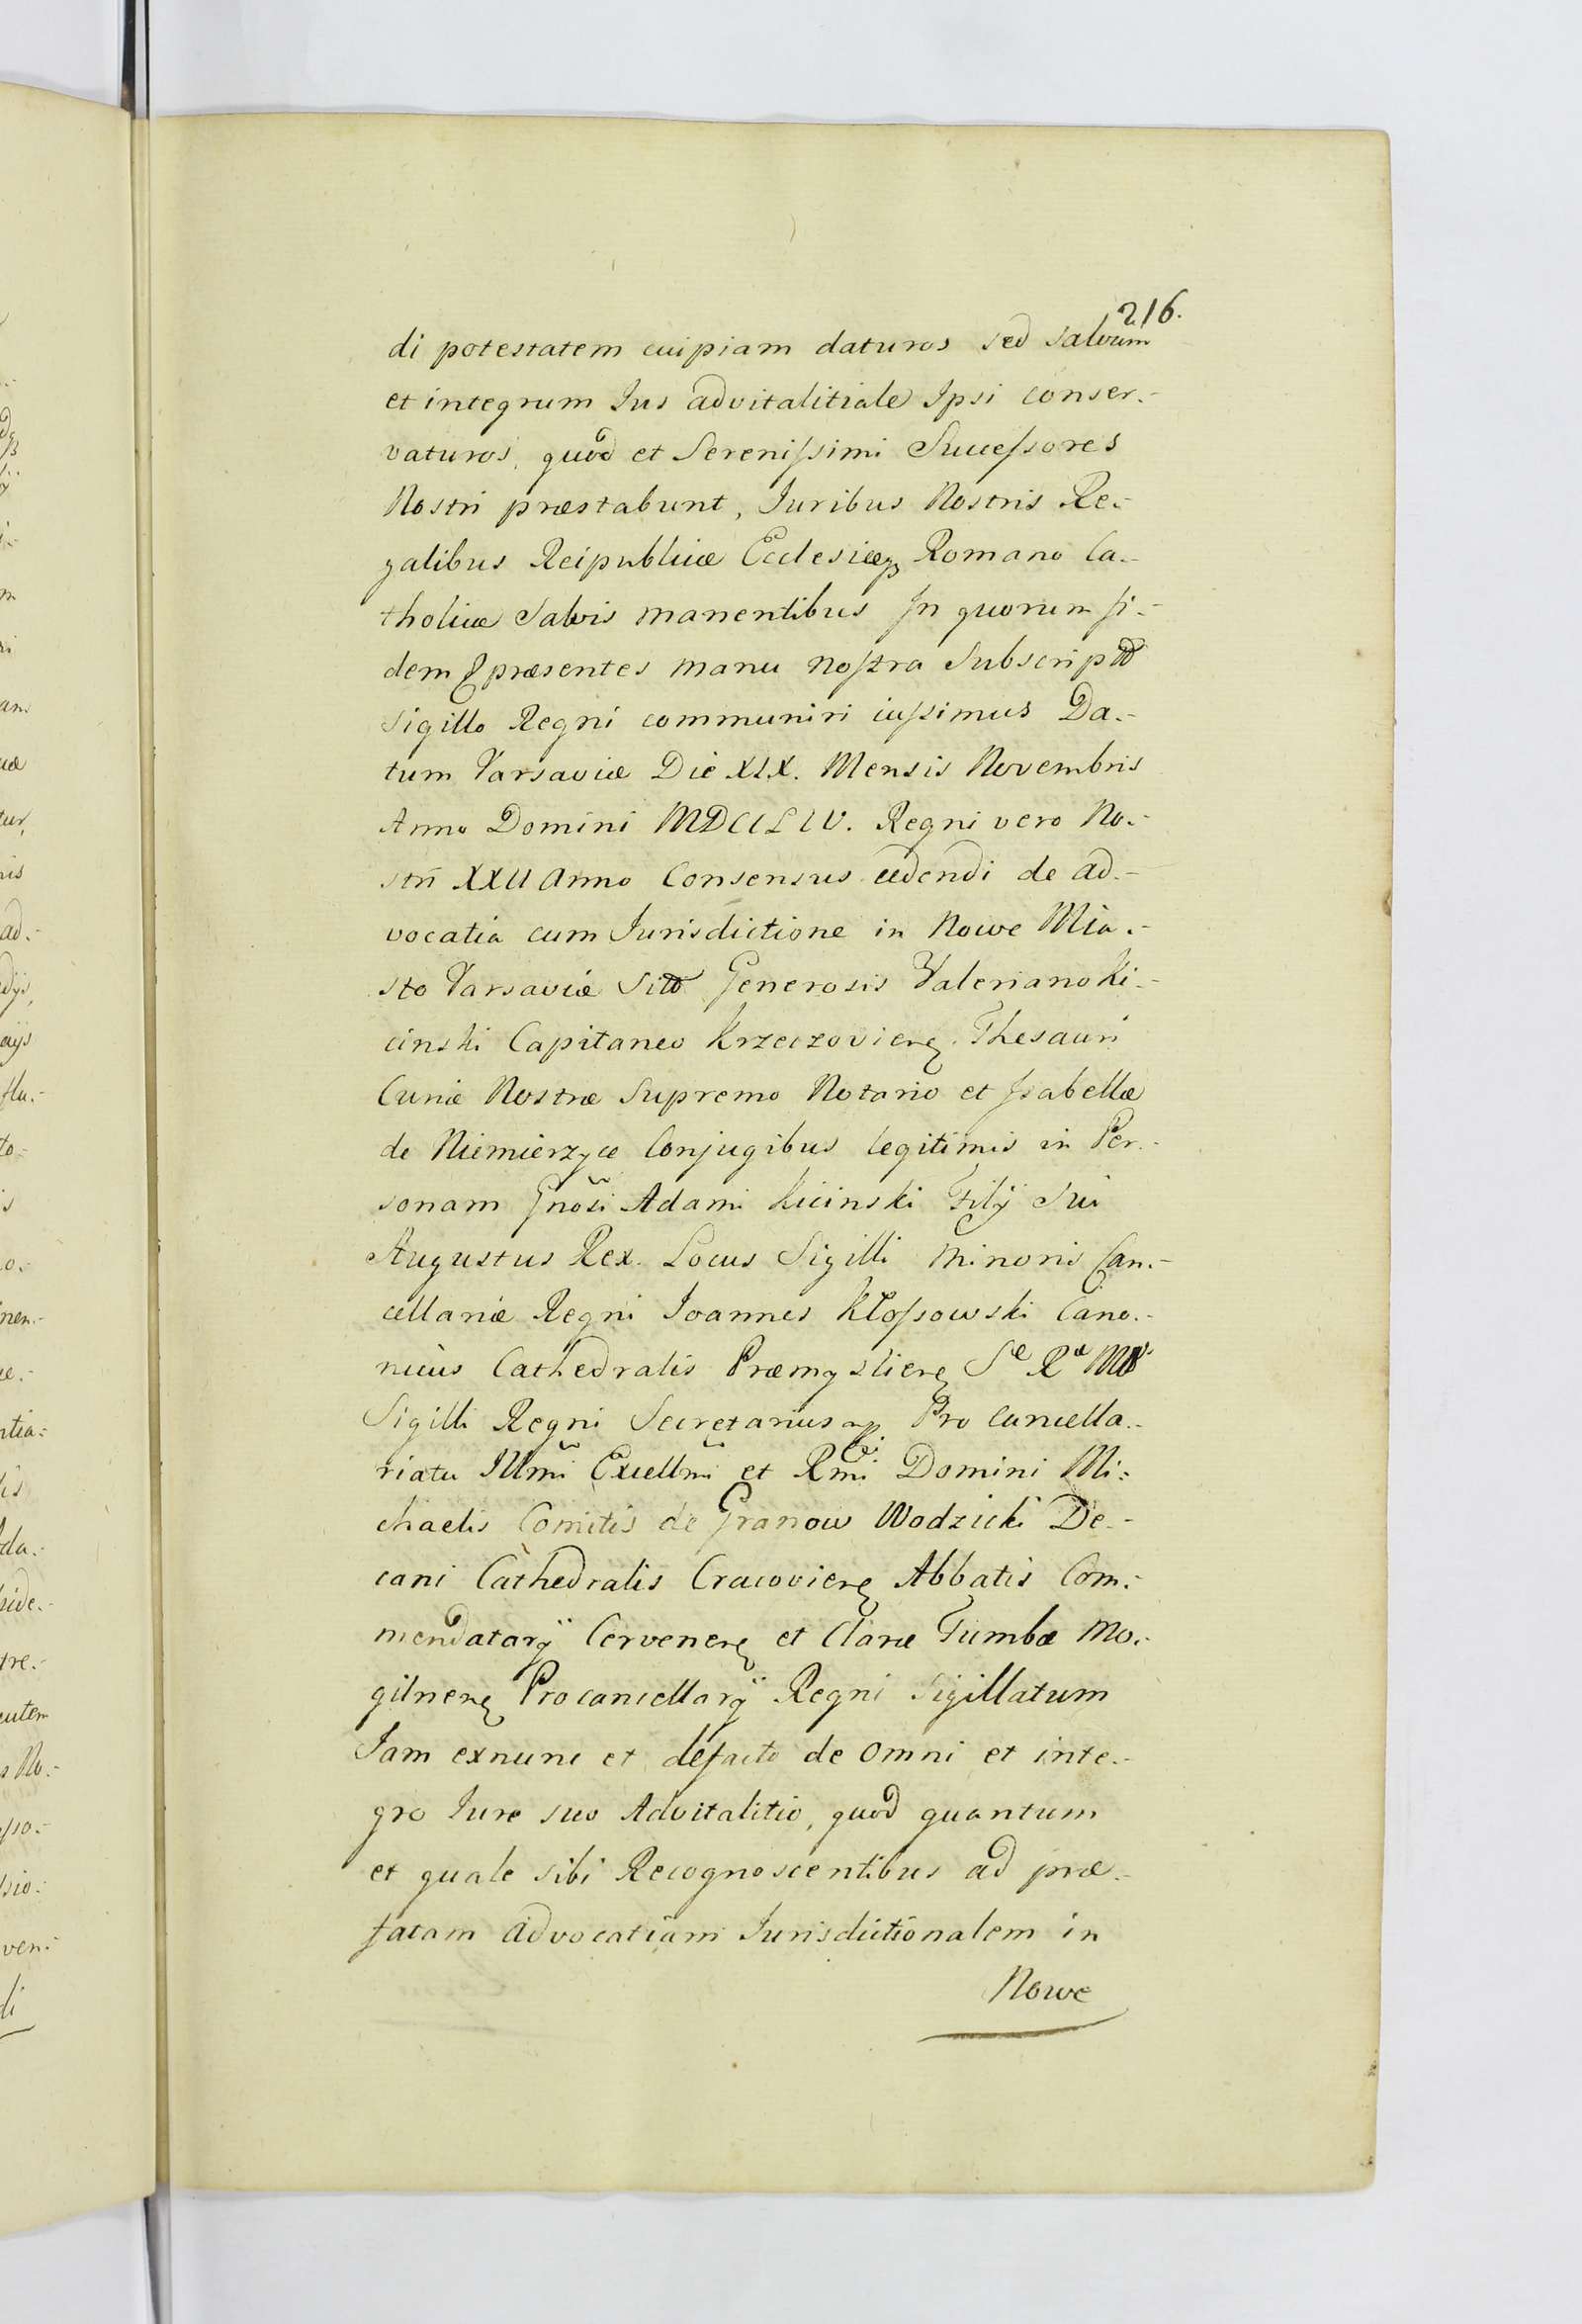 216.
di potestatem cuipiam daturos sed salvum
et integrum Jus advitalitiale Ipsi conser.-
vaturos, quod et Serenissimi Successores
Nostri præstabunt, Juribus Nostris Re.-
galibus Reipublicæ Ecclesiæq Romano Ca.-
tholicæ Salvis manentibus In quorum fi.-
dem præsentes manu nostra Subscriptas
Sigillo Regni communiri iussimus Da.-
tum Varsaviæ Die XIX. Mensis Novembris
Anno Domini MDCCLIV. Regni vero No.-
stri XXII Anno Consensus cedendi de ad.-
vocatia cum Jurisdictione in Nowe Mia.-
sto Varsaviæ Sitta Generosis Valeriano Ki.-
cinski Capitaneo Krzeczovien. Thesauri
Curiæ Nostræ Supremo Notario et Isabellæ
de Niemierzyce Conjugibus legitimis in Per.-
sonam Gnosi Adami Kicinski Filÿ Sui
Augustus Rex. Locus Sigilli Minoris Can.-
cellariæ Regni Joannes Kłossowski Cano.-
nicus Cathedralis Præmyslien Sæ Ræ Mtis
Sigilli Regni Secretarius Pro Cancella.-
riatu Illmi Excellmi et Rmi Domini Mi:
chaelis Comitis de Granow Wodzicki De.-
cani Cathedralis Cracovien Abbatis Com.-
mendatarÿ Cervenen et Claræ Tumbæ Mo.-
gilnen Procancellarÿ Regni Sigillatum
Jam exnunc et defacto de omni et inte.-
gro Jure suo Advitalitio, quod quantum
et quale sibi Recognoscentibus ad præ.-
fatam advocatiam Jurisdictionalem in
Nowe